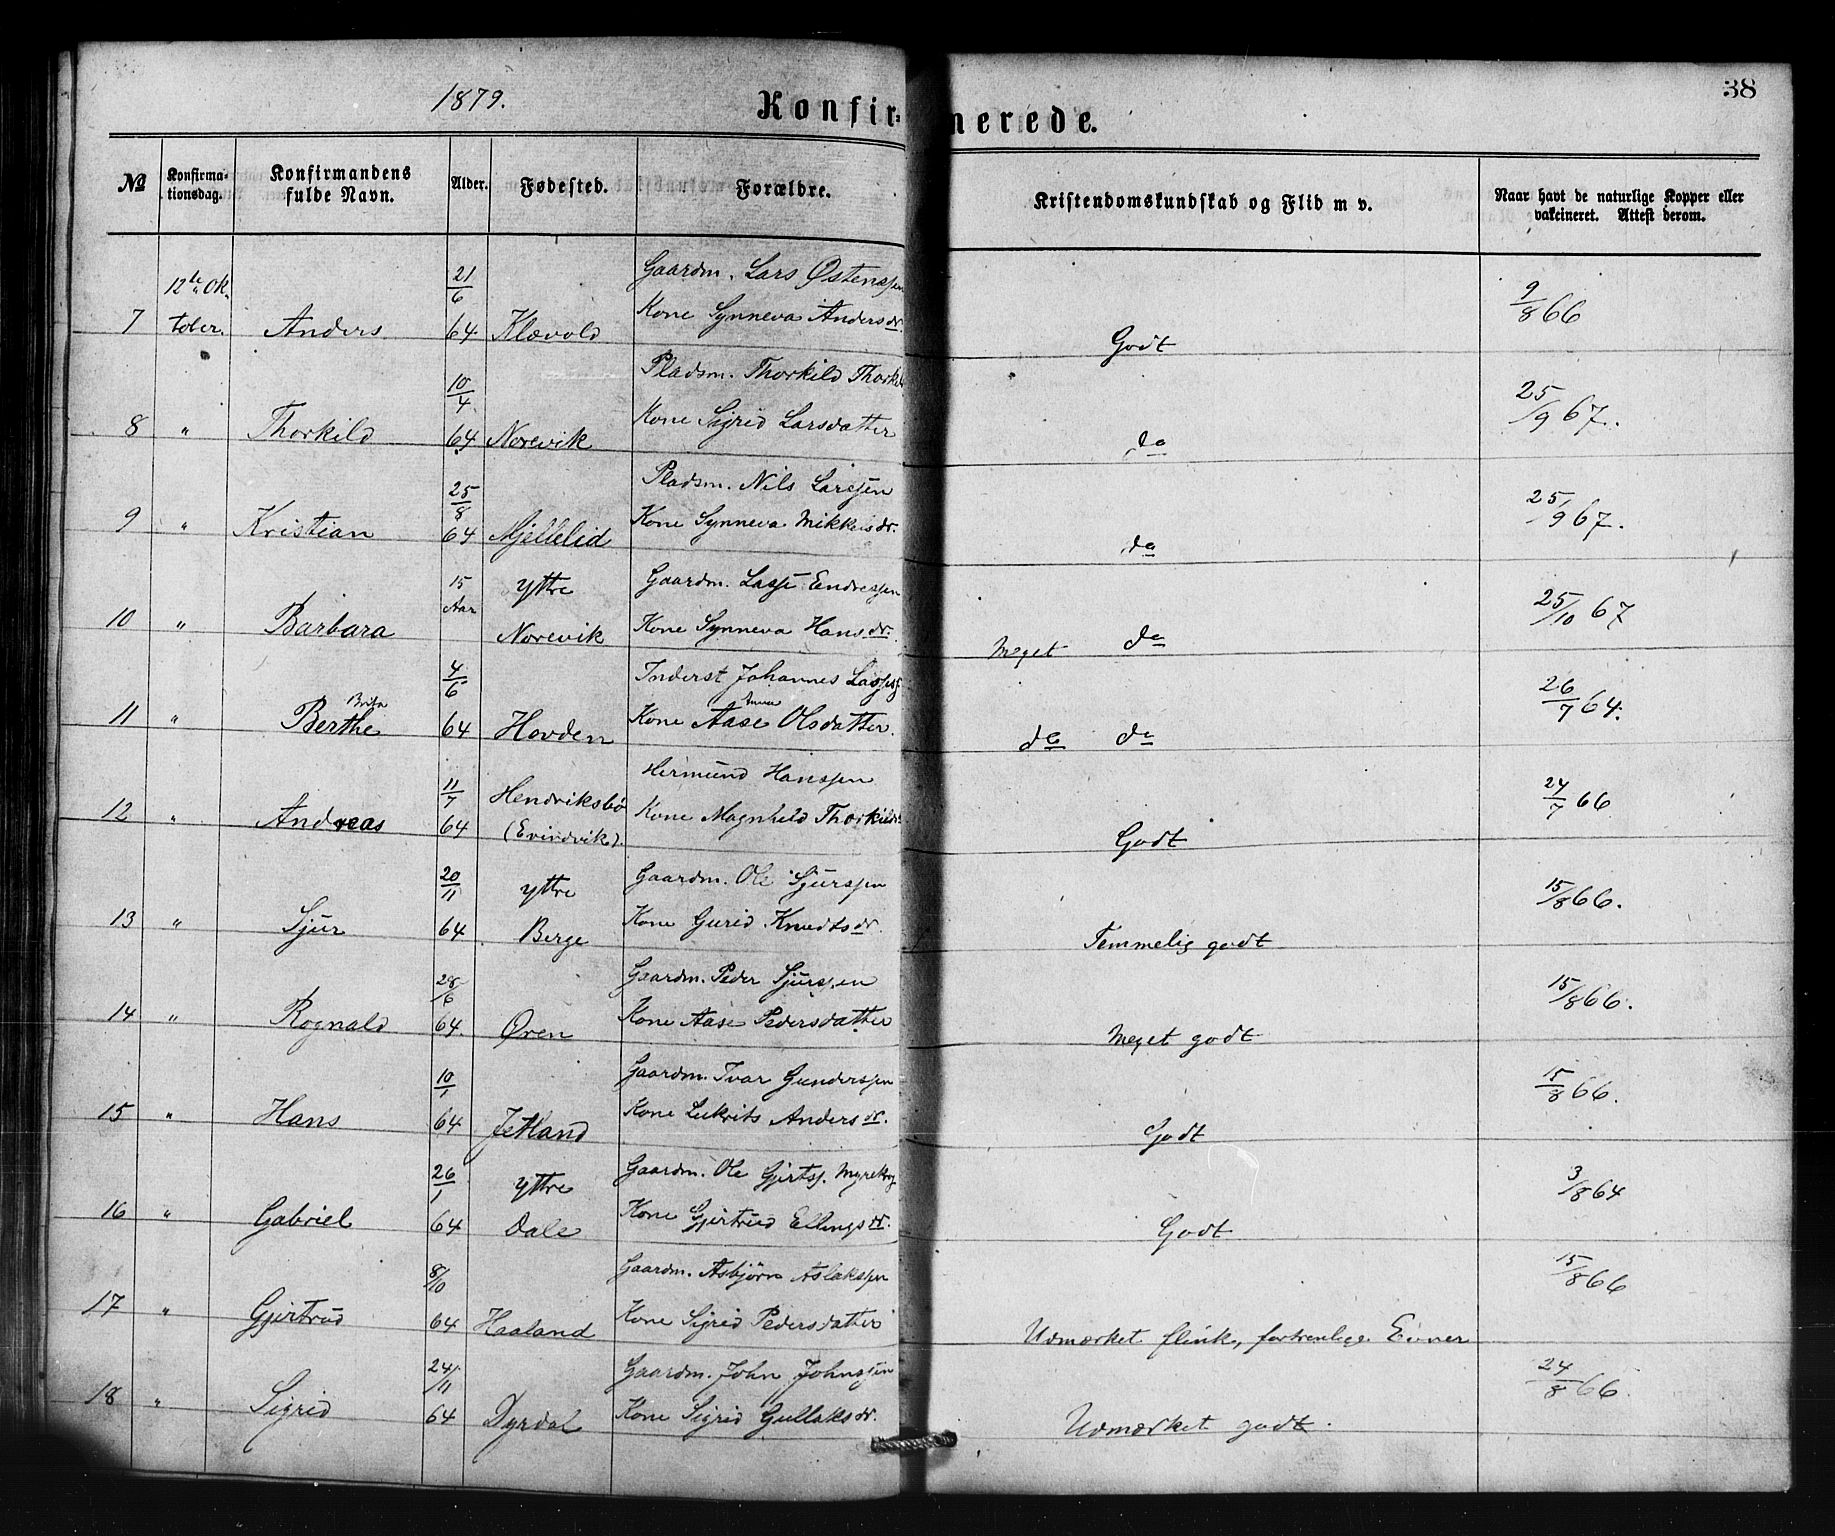 1879.
38
Konfir= merede.
No Konfirma-tionsdag. Konfirmandens fulde Navn. Alder. Fødested. Forældre. Kristendomskundskab og Flid m v. Naar havt de naturlige Kopper eller vakcineret. Attest derom.
12te Ok- 21/6 Gaardm. Lars Østenssen 9/8 66
7 tober. Anders 64 Klævold Kone Synneva Andersdr. Godt
10/4 Pladsm. Thorkild Thorkels 25/9 67.
8 " Thorkild 64 Norevik Kone Sigrid Larsdatter do
25/8 Pladsm. Nils Larssen 25/9 67.
9 " Kristian 64 Mjellelid Kone Synneva Mikkelsdr. do
15 Aar Yttre Gaardm. Lasse Endressen 25/10 67
10 " Barbara Norevik Kone Synneva Hansdr. Meget do
4/6 Brita Inderst Johannes Lasses 26/7 64.
11 " Berthe 64 Hovden Kone Aase Olsdatter. do do
11/7 Hendriksbø Hermund Hanssen 24/7 66
12 " Andreas 64 (Evindvik). Kone Magnhild Thorkildsd Godt
20/11 Yttre Gaardm. Ole Sjurssen 15/8 66.
13 " Sjur 64 Berge Kone Gurid Knudtsdr. Temmelig godt
28/6 Gaardm. Peder Sjurssen 15/8 66.
14 " Rognald 64. Øren Kone Aase Pedersdatter Meget godt
10/1 Gaardm. Ivar Gunderssen 15/8 66.
15 " Hans 64 Jetland Kone Lukrits Andersdr. Godt
26/1 Yttre Gaardm. Ole Gjertss. Myrekrog 3/8 64
16 " Gabriel 64 Dale Kone Gjertrud Ellingsdr. Godt
8/10 Gaardm. Asbjørn Aslakssen 15/8 66
17 " Gjertrud 64 Haaland Kone Sigrid Pedersdatter Udmærket flink, fortrenlige Evner
24/11 Gaardm. John Johnssen 24/8 66.
18 " Sigrid 64 Dyrdal Kone Sigrid Gullaksdr. Udmærket godt.